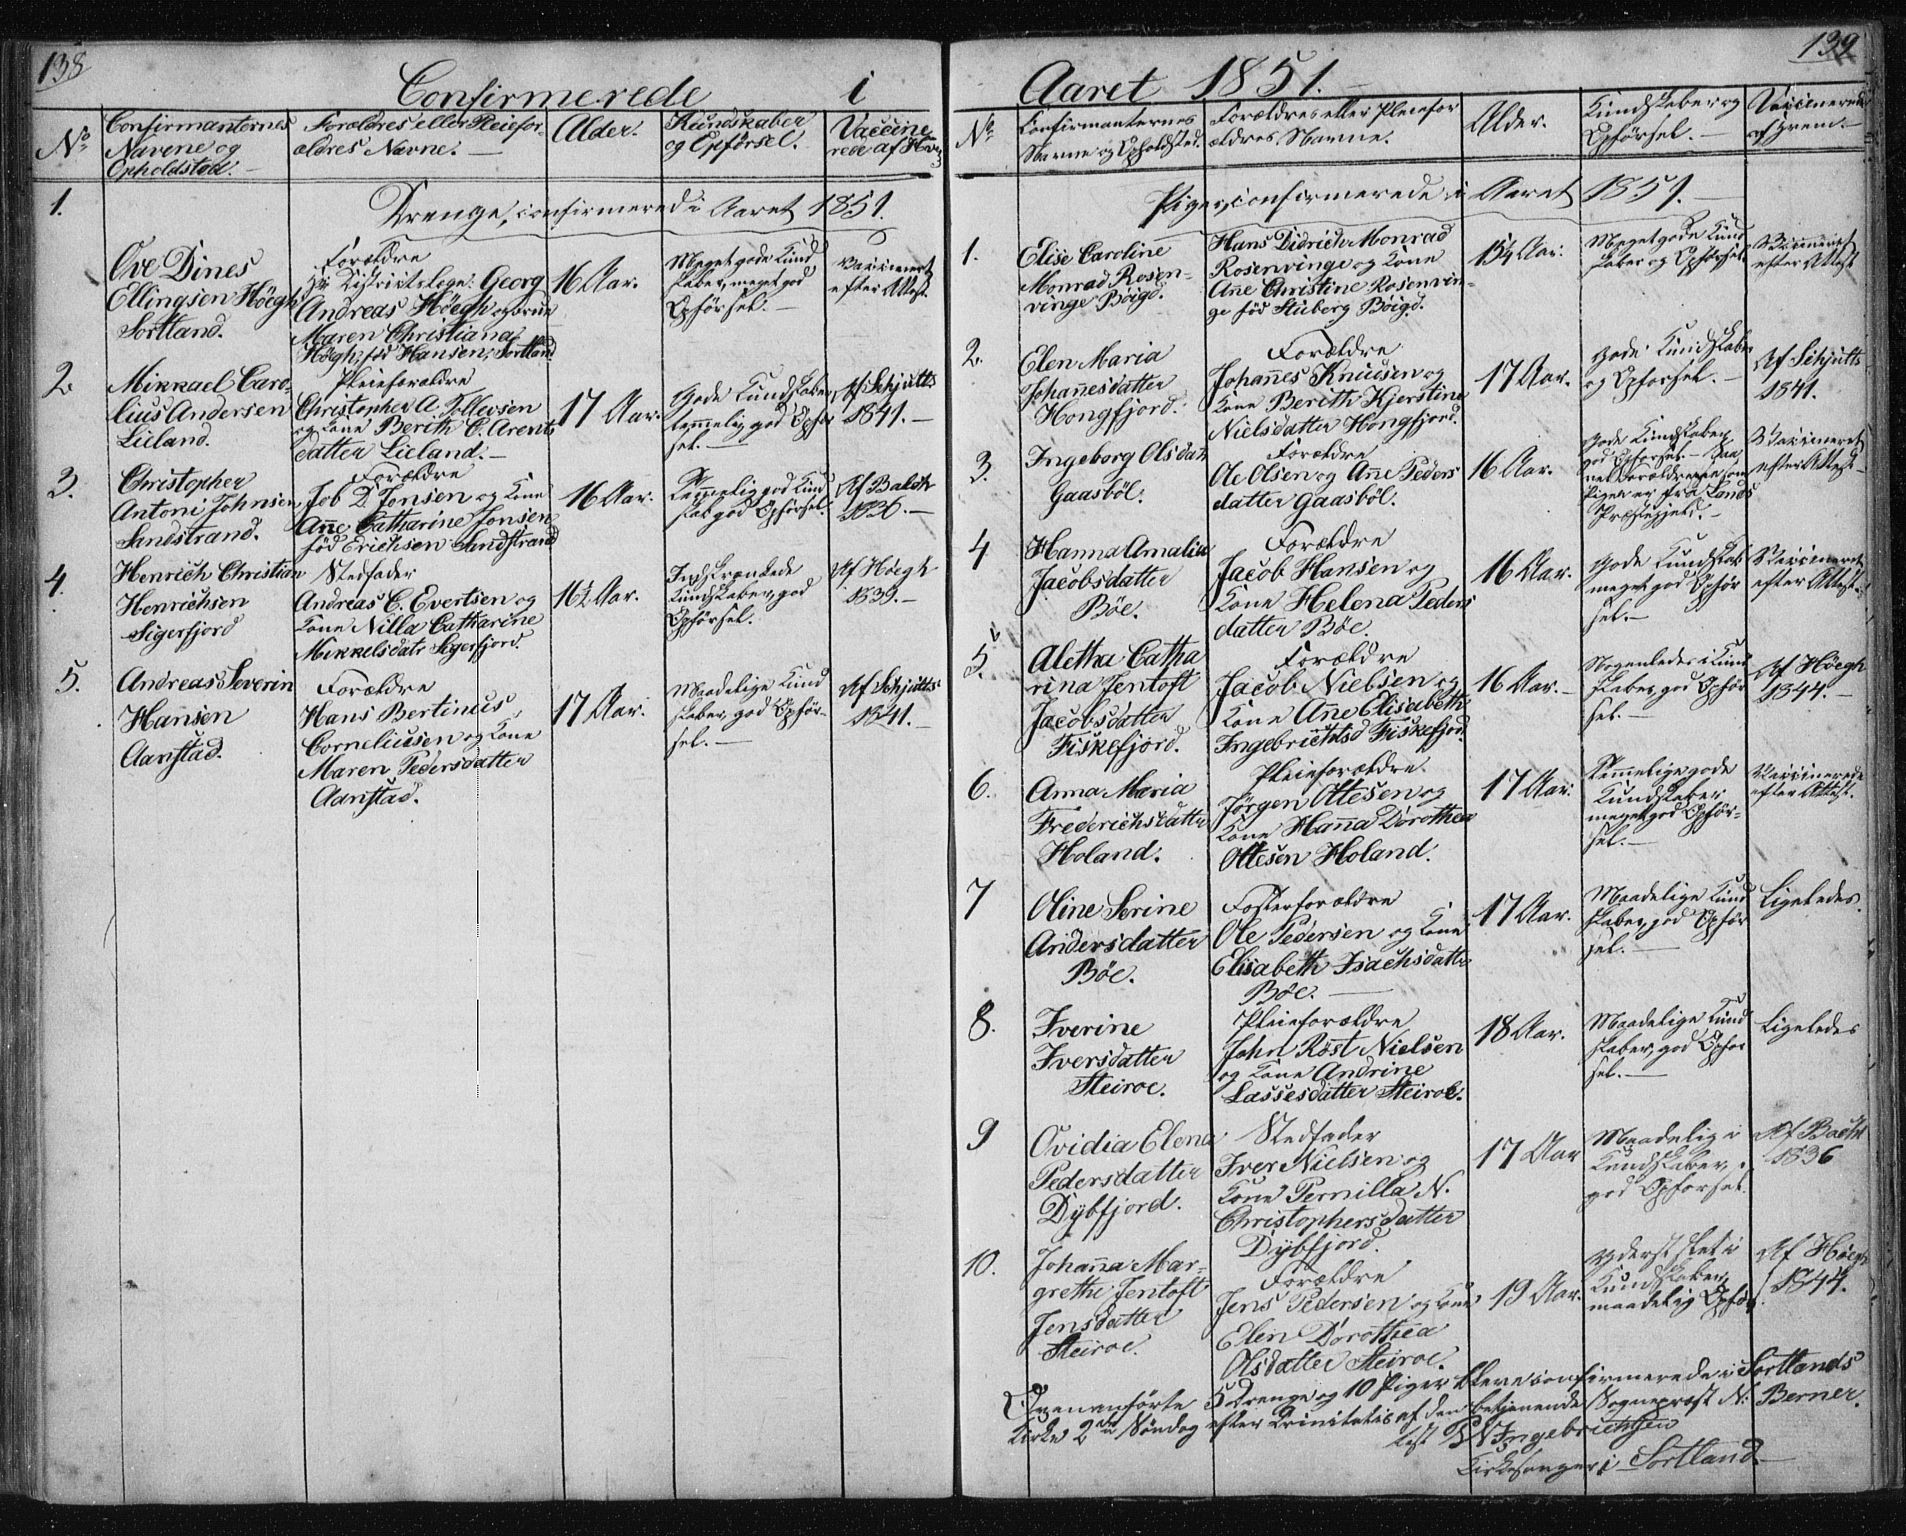 138
Confirmerede i
No
Confirmanternes
Navene og
Opholdsted.
Forældres eller Pleiefor-
ældres Navne.
Alder.
Kundskaber
og Opførsel.
Vaccine
rede af Hvem
1.
Drenge, confirmerede i Aaret 1851.
Ove Dines
Ellingsen Höegh
Sortland.
Forældre
Georg
Andreas Höegh og Frue
Maren Christiana
Höegh, fød Hansen, Sortland
16 Aar.
Meget gode Kund
skaber, meget god
Opførsel.
Vaccineret
efter Attest.
2.
Mikkael Caro-
lius Andersen
Lieland.
Pleieforældre
Christopher A. Tollevsen
og Kone Berith C. Arents
datter Lieland.
17 Aar.
Gode Kundskaber
temmelig god Opfør
sel.
Af Schjütts
1841.
3.
Christopher
Antoni Johnsen
Sandstrand.
Forældre
Job D Jonsen og Kone
Añe Catharine Jonsen
fød Erichsen Sandstrand
16 Aar.
Temmelig god Kund
skab, god Opförsel.
Af Balch
1836.
4.
Henrich Christian
Henrichsen
Sigerfjord
Stedfader
Andreas C. Evertsen og
Kone Nilla Catharine
Mikkelsdatr Sigerfjord.
16½ Aar.
Indskrænkede
Kundskaber, god
Opförsel.
Af Höegh
1839.
5.
Andreas Severin
Hansen
Aanstad.
Forældre
Hans Bertinus
Corneliusen og Kone
Maren Pedersdatter
Aanstad.
17 Aar.
Maadelige Kund
skaber, god Opför-
sel.
Af Schjütts
1841.
139
Aaret 1851.
No
Confirmanternes
Navne og Opholdsted.
Forældres eller Pleiefor
ældres Navne.
Alder.
Kundskaber og
Opförsel.
Vaccinerede
af Hvem.
Piger, confirmerede i Aaret 1851.
1.
Elise Caroline
Monrad Rosen-
vinge Böigd.
Hans Didrich Monrad
Rosenvinge og Kone
Añe Christine Rosenvin-
ge föd Stüberg Böigd.
15¼ Aar.
Meget gode Kund
skaber og Opförsel.
Vaccineret
efter Attest
2.
Elen Maria
Johañesdatter
Hongfjord.
Forældre
Johañes Knüdsen og
Kone Berith Kjerstine
Nielsdatter Hongfjord.
17 Aar.
Gode Kundskaber
og Opförsel.
Af Schjütts
1841.
3.
Ingeborg Olsdatr
Gaasböl.
Forældre
Ole Olsen og Añe Peders
datter Gaasböl.
16 Aar.
Gode Kundskaber,
god Opförsel.
Forældrene som
Pigen er fra Lands
Præstegjeld.
Vaccineret
efter Attest
4
Hanna Amalia
Jacobsdatter
Böe.
Forældre
Jacob Hansen og
Kone Helena Peders
datter Böe.
16 Aar.
Gode Kundskab
meget god Opför
sel.
Vaccineret
efter Attest.
5.
Aletha Catha
rina Jentoft
Jacobsdatter
Fiskefjord.
Forældre
Jacob Nielsen og
Kone Añe Elisabeth
Ingebrichtsd Fiskefjord.
16 Aar.
Nogenledes i Kund
skaber, god Opför
sel.
Af Höegh
1844.
6.
Anna Maria
Frederichsdatter
Holand.
Pleieforældre
Jörgen Ottesen og
Kone Hanna Dorothea
Ottesen Holand.
17 Aar.
Temmelige gode
Kundskaber
meget god Opför-
sel.
Vaccinerede
efter Attest.
7
Oline Serine
Andersdatter
Böe.
Fosterforældre
Ole Pedersen og Kone
Elisabeth Isachsdatter
Böe.
17 Aar.
Maadelige Kund
skaber, god Opför
sel.
Ligeledes.
8.
Iverine
Iversdatter
Steiroe.
Pleieforældre
John Röst Nielsen
og Kone Andrine
Lassesdatter Steiroe.
18 Aar.
Maadelige Kund
skaber, god Opför
sel.
Ligeledes
9
Ovidia Elena
Pedersdatter
Dybfjord.
Stedfader
Iver Nielsen og
Kone Pernilla N.
Christophersdatter
Dybfjord.
17 Aar
Maadelig i
Kundskaber,
god Opförsel.
Af Balch
1836
10.
Johaña Mar-
grethe Jentoft
Jensdatter
Steiroe.
Forældre
Jens Pedersen og Kone
Elen Dorothea
Olsdatter Steiroe.
19 Aar.
Yderst slet i
Kundskaber,
maadelig Opför.
Af Höegh
1844.
Ovenanförte 5 Drenge og 10 Piger bleve confirmerede i Sortlands
Kirke 2den Söndag efter Trinitatis af den betjenende Sogneprest N: Berner.
W Ingebrichtsen
Kirkesanger i Sortland.